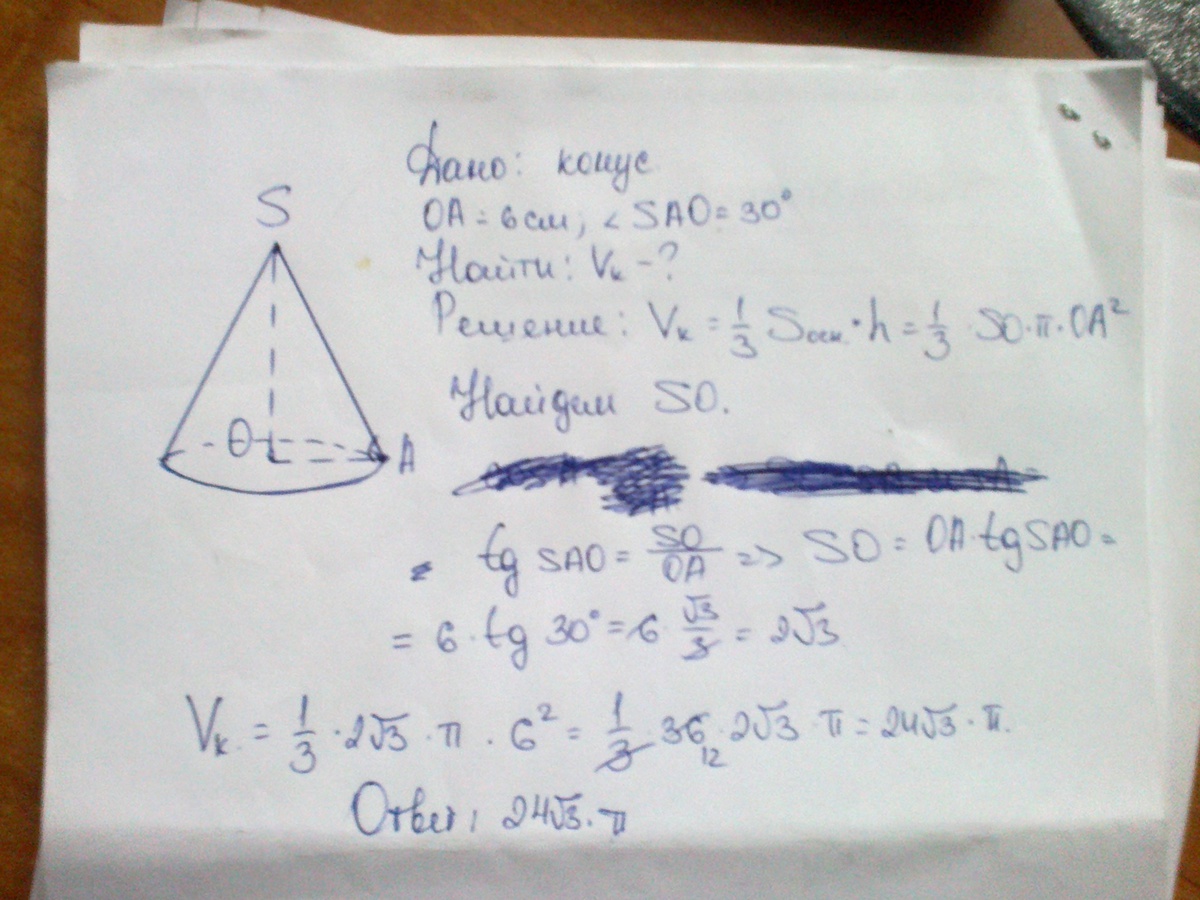 S
O
A
Дано: конус
OA = 6 см, ∠ SAO = 30°
Найти: Vк - ?
Решение: Vк = 1/3 Sосн. · h = 1/3 · SO · π · OA²
Найдем SO.
tg SAO = SO/OA => SO = OA · tg SAO =
= 6 · tg 30° = 6 · √3/3 = 2√3
Vк. = 1/3 · 2√3 · π · 6² = 1/3 · 36 12 · 2√3 · π = 24√3 · π.
Ответ: 24√3 · π